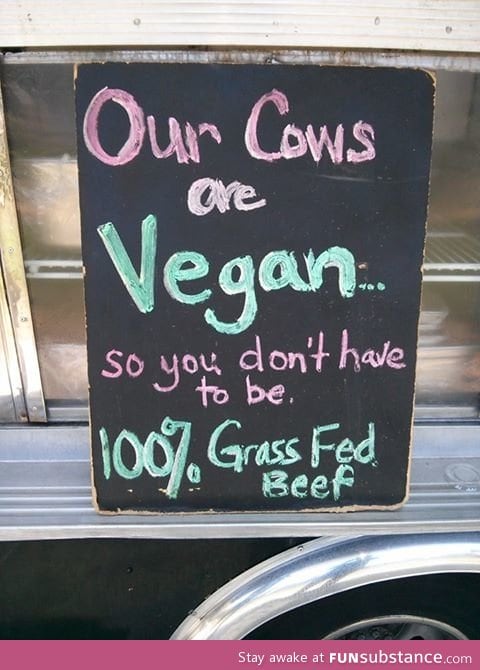 Our Cows
are
Vegan...
so you don't have
to be.
100% Grass Fed
Beef
Stay awake at FUNsubstance.com